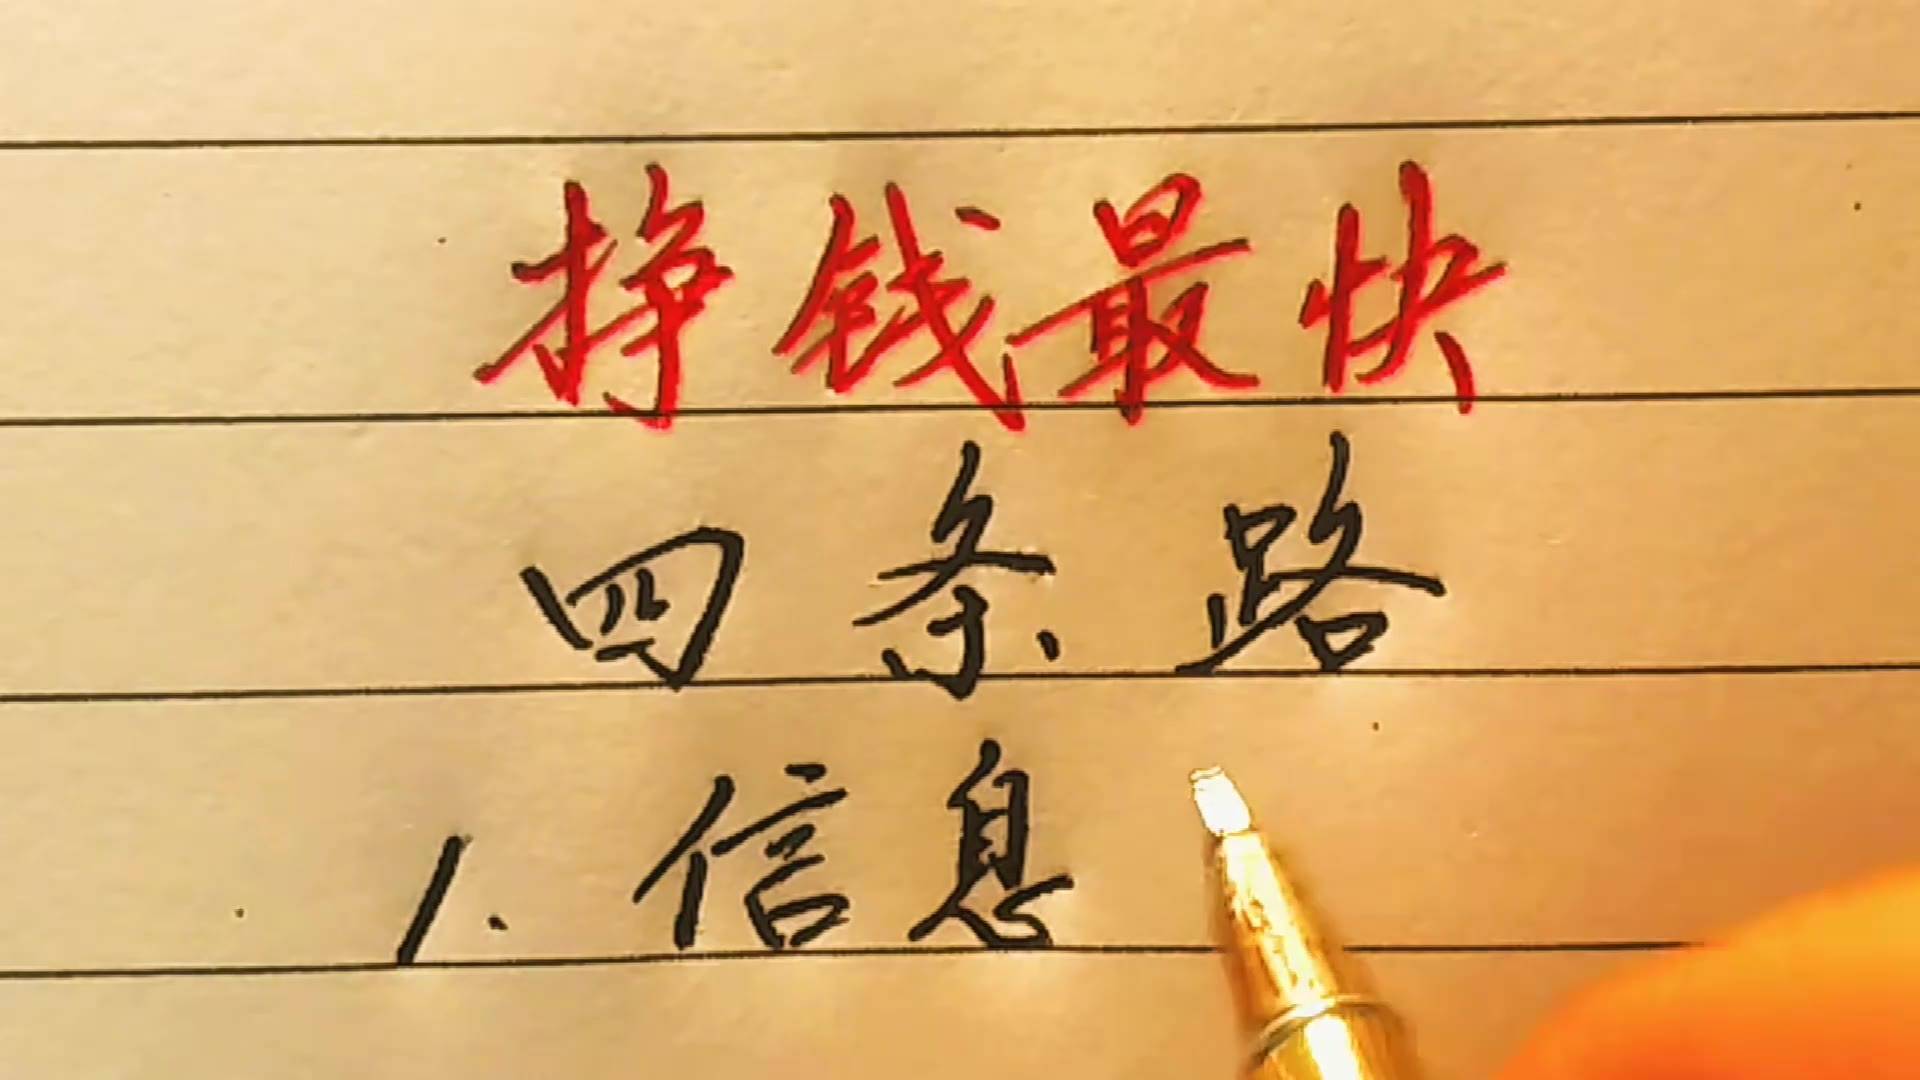 挣钱最快
四条路
1.信息